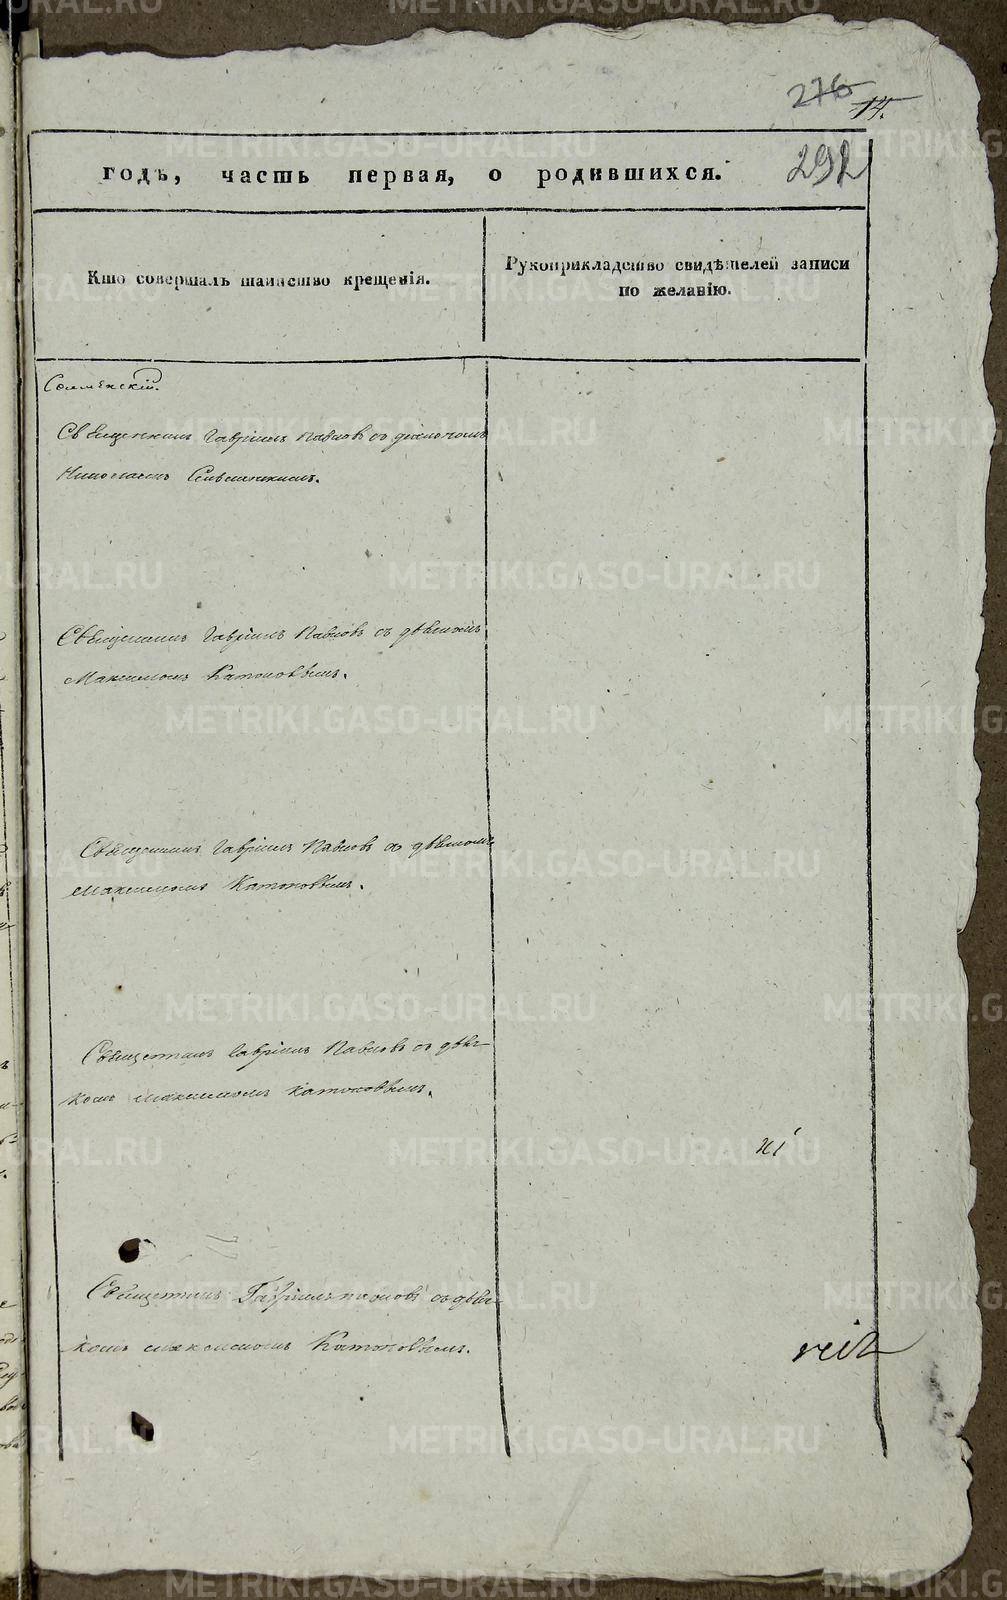 276
14.
292
годъ, часть первая, о родившихся.
Кто совершалъ таинство крещенія.
Рукоприкладство свидѣтелей записи
по желанію.
Священникъ Гавріилъ Павловъ съ дьячкомъ
Николаемъ
Священникъ Гавріилъ Павловъ съ дьячкомъ
Максимомъ Катоковымъ.
Священникъ Гавріилъ Павловъ съ дьячкомъ
Максимомъ Катоковымъ.
Священникъ Гавріилъ Павловъ съ дьяч-
комъ Максимомъ Катоковымъ.
Священникъ Гавріилъ Павловъ съ дьяч-
комъ Максимомъ Катоковымъ.
METRIKI.GASO-URAL.RU